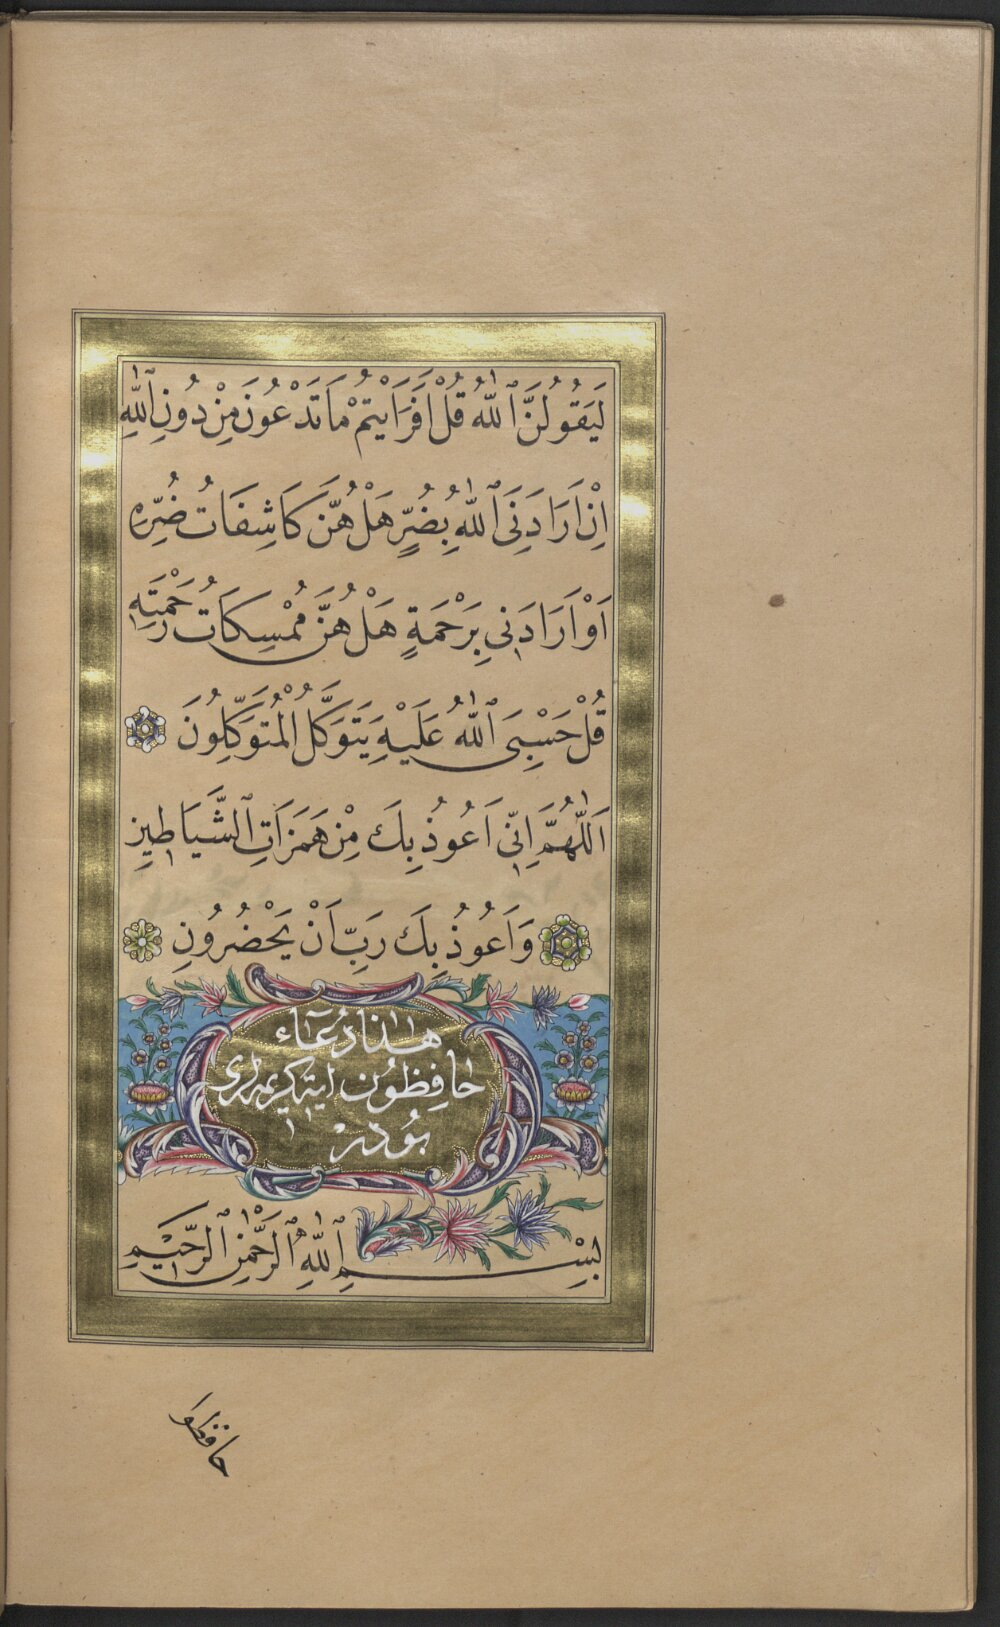 لَيَقُولُنَّ ٱللّٰهُ قُلْ اَفَرَاَيْتُمْ مَا تَدْعُونَ مِنْ دُونِ ٱللّٰهِ
اِنْ اَرَادَنِىَ ٱللّٰهُ بِضُرٍّ هَلْ هُنَّ كَاشِفَاتُ ضُرِّهِ
اَوْ اَرَادَنِى بِرَحْمَةٍ هَلْ هُنَّ مُمْسِكَاتُ رَحْمَتِهِ
قُلْ حَسْبِىَ ٱللّٰهُ عَلَيْهِ يَتَوَكَّلُ الْمُتَوَكِّلُونَ
اَللّٰهُمَّ اِنِّى اَعُوذُ بِكَ مِنْ هَمَزَاتِ ٱلشَّيَاطِينِ
وَاَعُوذُ بِكَ رَبِّ اَنْ يَحْضُرُونِ
هٰذَا دُعَٓاء
حٰافِظُون ايت كريمه لرى
بُودُرْ
بِسْــمِ ٱللّٰهِ ٱلرَّحْمٰنِ ٱلرَّحِيْمِ
حافظو